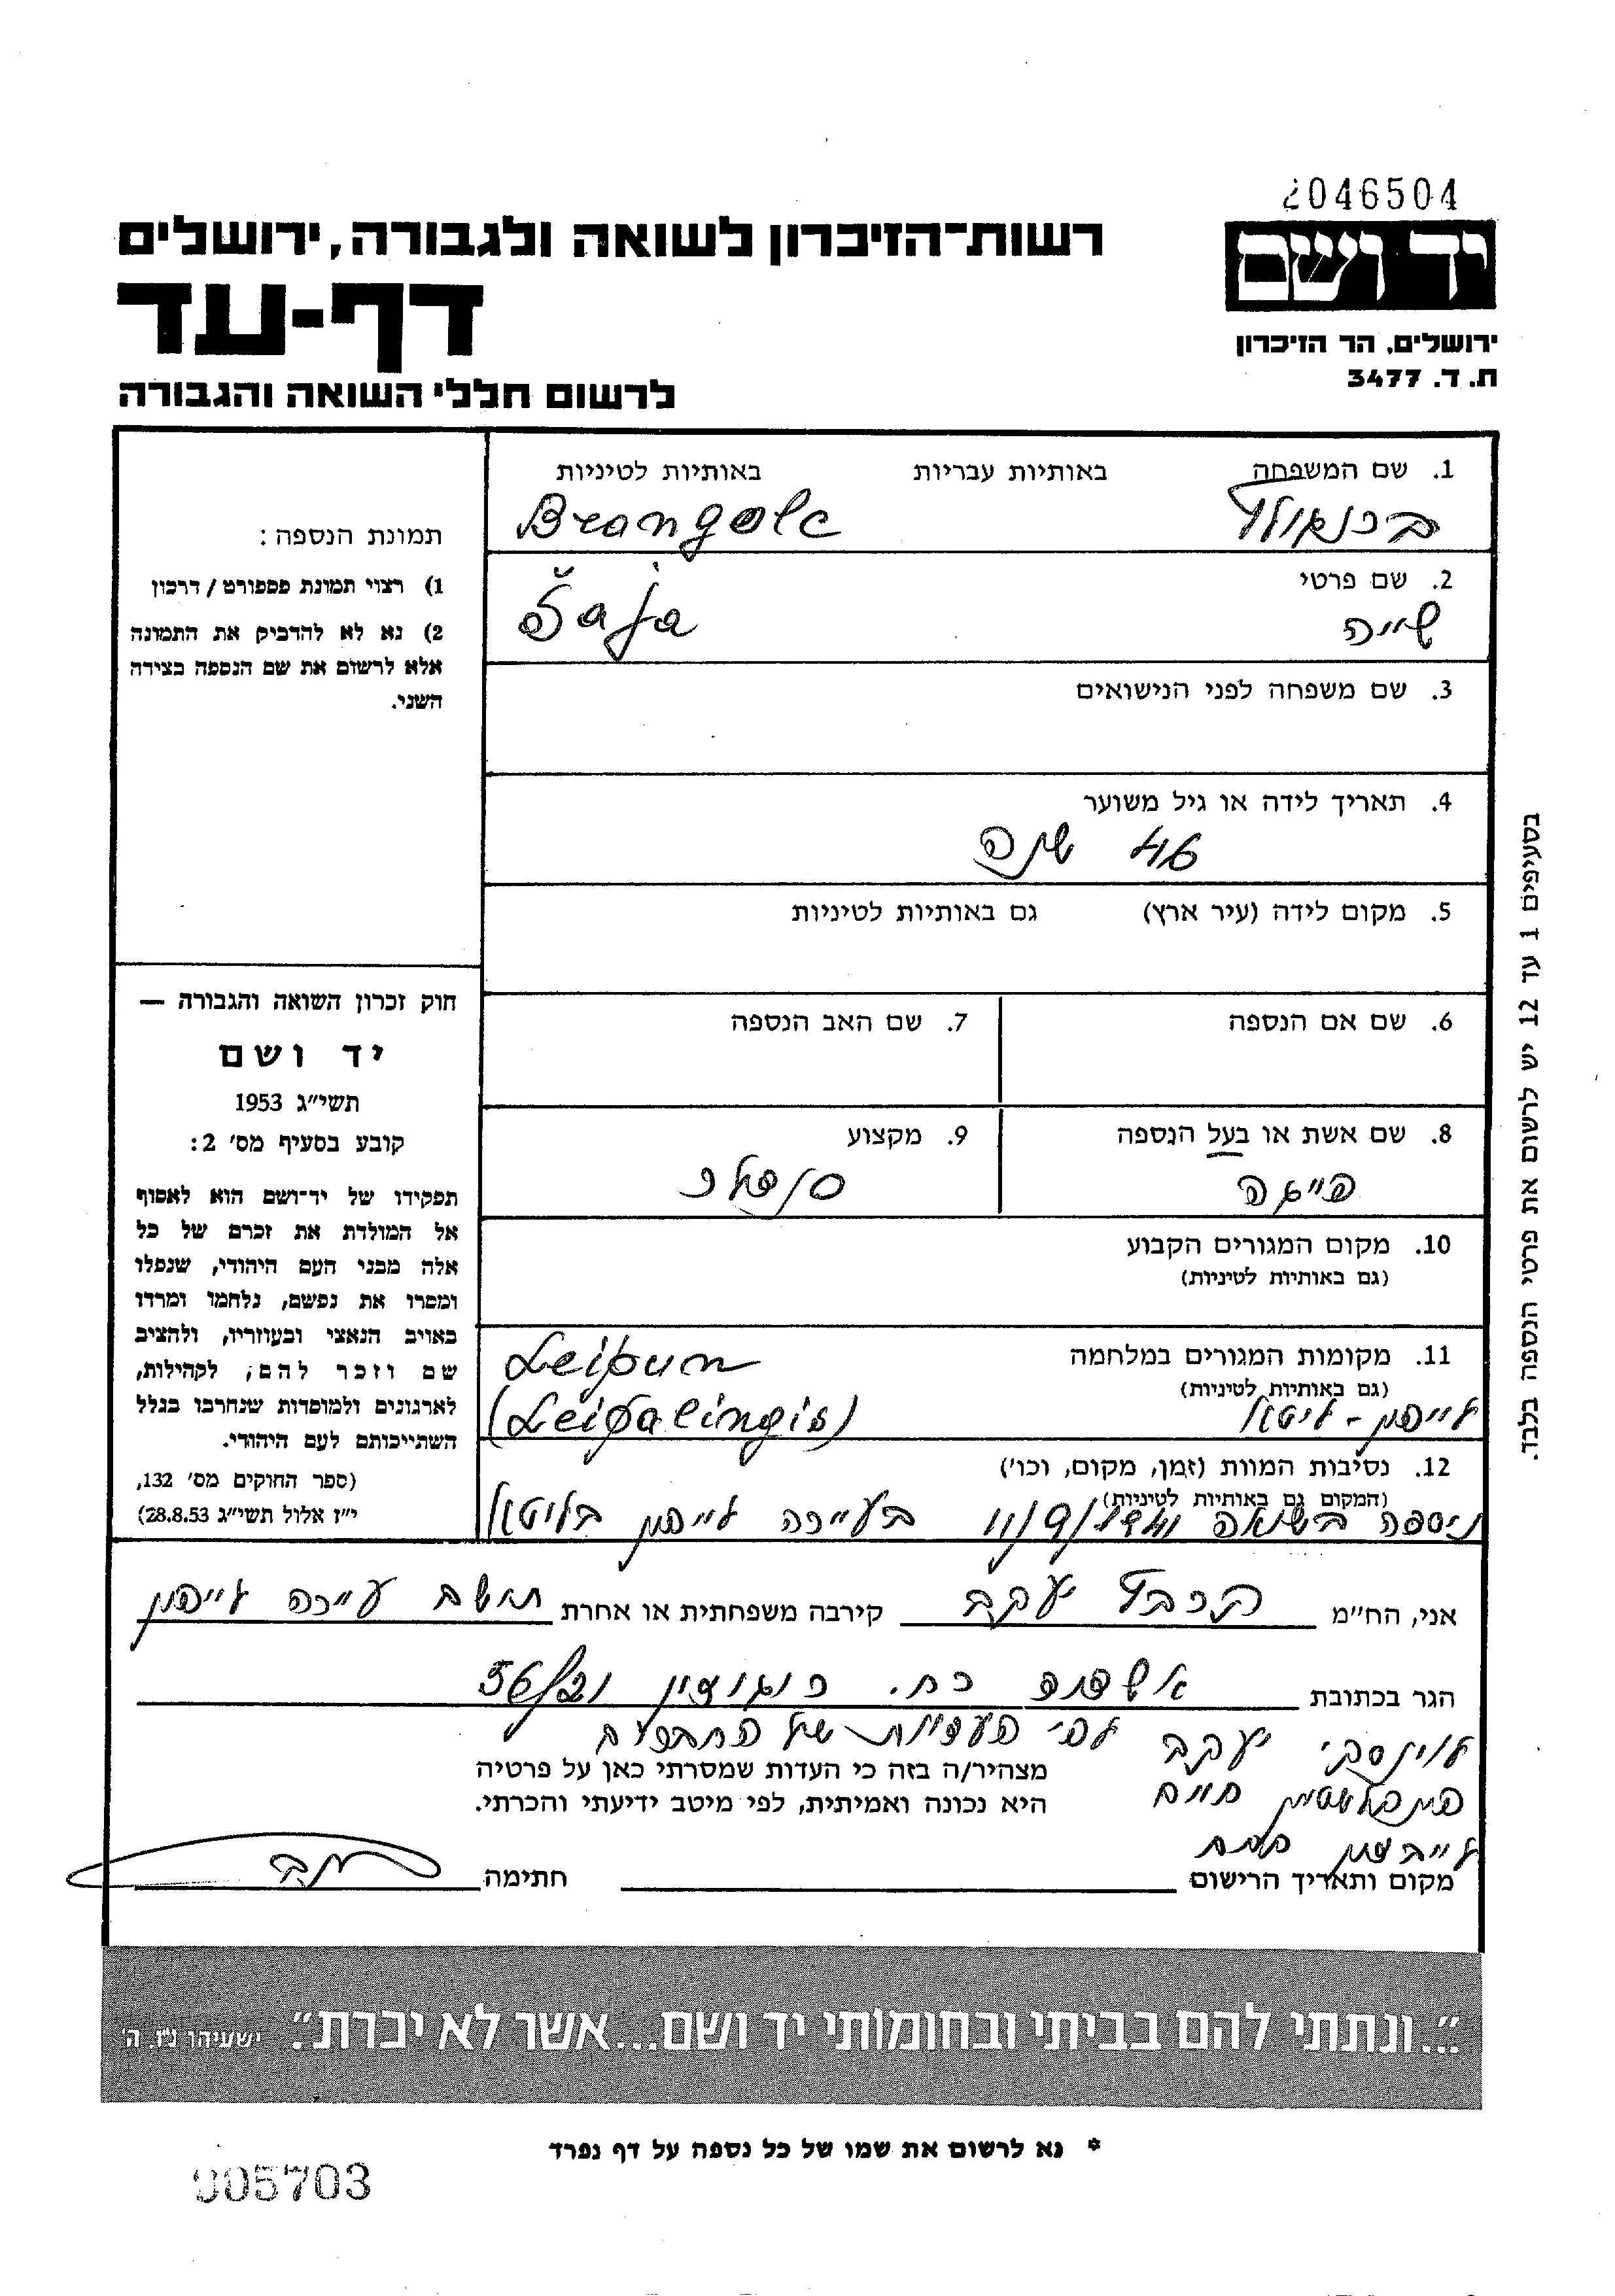 2046504
יד ושם
ירושלים, הר הזיכרון
ת. ד. 3477
רשות־הזיכרון לשואה ולגבורה, ירושלים
דף-עד
לרשום חללי השואה והגבורה
1. שם המשפחה באותיות עבריות באותיות לטיניות
ברנגולד Brangolc
2. שם פרטי
שייה Šaja
3. שם משפחה לפני הנישואים
4. תאריך לידה או גיל משוער
46 שנה
5. מקום לידה (עיר ארץ) גם באותיות לטיניות
6. שם אם הנספה 7. שם האב הנספה
8. שם אשת או בעל הנספה 9. מקצוע
פייגה סנדלר
10. מקום המגורים הקבוע
(גם באותיות לטיניות)
11. מקומות המגורים במלחמה Leipun
(גם באותיות לטיניות)
לייפון - ליטא (Leipalingis)
12. נסיבות המוות (זמן, מקום, וכו')
(המקום גם באותיות לטיניות)
ניספה בשואה 11/9/1941 בעיירה לייפון בליטא
תמונת הנספה :
1) רצוי תמונת פספורט / דרכון
2) נא לא להדביק את התמונה
אלא לרשום את שם הנספה בצידה
השני.
חוק זכרון השואה והגבורה —
יד ושם
תשי"ג 1953
קובע בסעיף מס' 2:
תפקידו של יד־ושם הוא לאסוף
אל המולדת את זכרם של כל
אלה מבני העם היהודי, שנפלו
ומסרו את נפשם, נלחמו ומרדו
באויב הנאצי ובעוזריו, ולהציב
שם וזכר להם; לקהילות,
לארגונים ולמוסדות שנחרבו בגלל
השתייכותם לעם היהודי.
(ספר החוקים מס' 132,
י"ז אלול תשי"ג 28.8.53)
בסעיפים 1 עד 12 יש לרשום את פרטי הנספה בלבד.
אני, הח"מ יעקב קירבה משפחתית או אחרת תושב עיירה לייפון
הגר בכתובת אשדוד רח. רוגוזין 56/21
לוינסקי יעקב לפי העדות של החתומים
מצהיר/ה בזה כי העדות שמסרתי כאן על פרטיה
פינקלשטיין חיים
היא נכונה ואמיתית, לפי מיטב ידיעתי והכרתי.
לייבזון
מקום ותאריך הרישום חתימה
"...ונתתי להם בביתי ובחומותי יד ושם...אשר לא יכרת". ישעיהו נ"ו. ה'
* נא לרשום את שמו של כל נספה על דף נפרד
005703